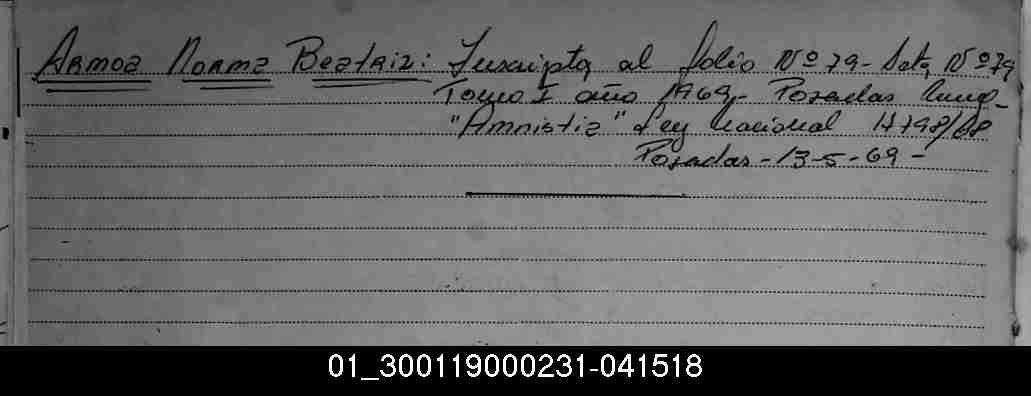 Armoa Norma Beatriz: Inscripta al folio Nº 79- Acta Nº 79
Tomo I año 1969- Posadas
"Amnistia" Ley Nacional 17798/68
Posadas - 13-5-69 -
01_300119000231-041518